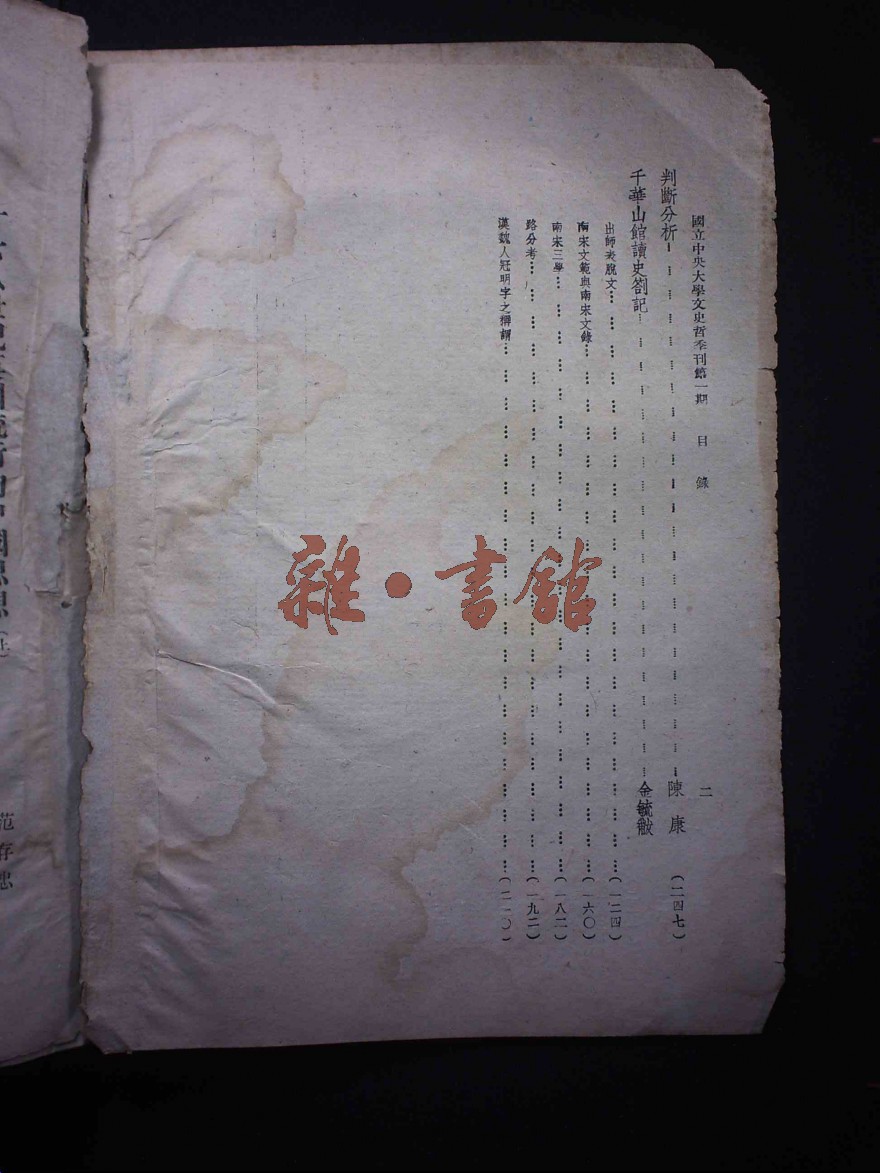 國立中央大學文史哲季刊第一期 目錄 二
判斷分析 陳康 (二四七)
千華山館讀史劄記 金毓黻
出師表脫文 (一二四)
南宋文範與南宋文錄 (一六〇)
南宋三學 (一八二)
路分考 (一九二)
漢魏人冠明字之稱謂 (二一〇)
雜·書館
的中國思想(上)
范存忠